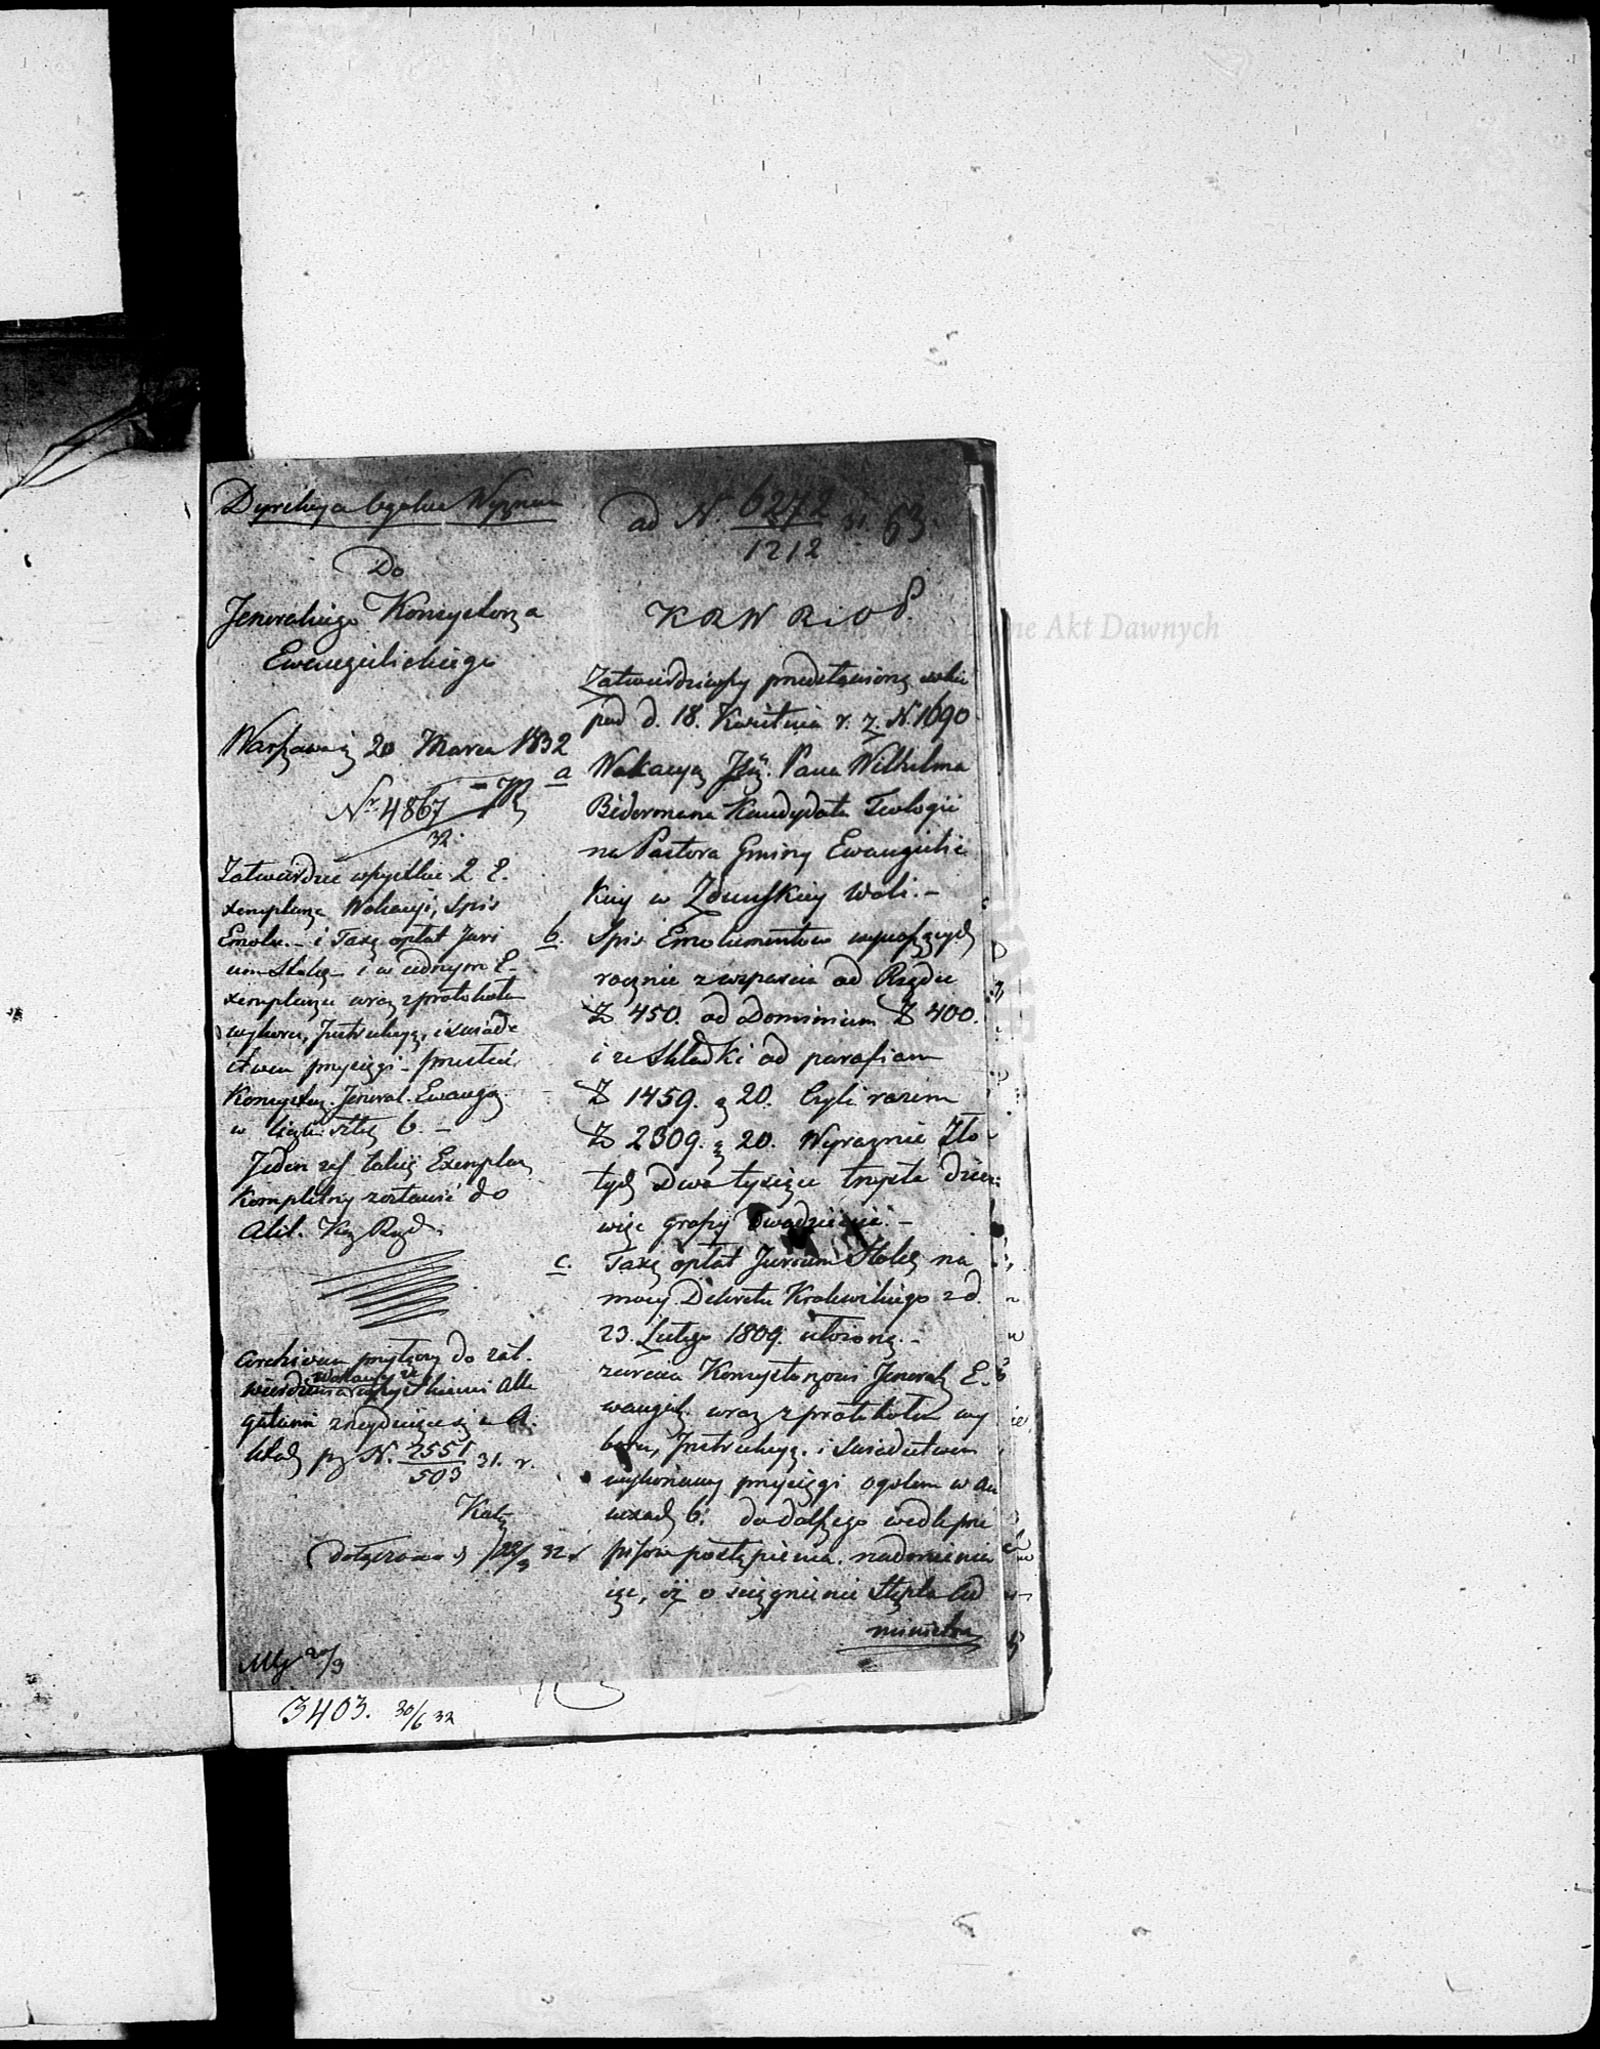 Dyrekcya Ogólna Wyznań
Do
Jeneralnego Konsystorza
Ewangelickiego
Warszawa 20 Marca 1832
Nr. 4867
32.
Zatwierdzić wszystkie 2. E-
xemplarze Wokacyi, Spis
Emolu. - i Taxę opłat Juri
um Stolae - i w jednym E-
xemplarzu wraz z protokołem
wyboru, Instrukcyą, i świade
ctwem przysięgi - przesłać
Konsystorz. Jeneral. Ewang.
w liczbie sztuk 6. -
Jeden zaś takiż Exemplarz
Kompletny zostawić do
Akt. Kom. Rząd.
Archivum przyłączy do zat-
wierdzenia wokacyą ze
wszystkiemi Alle
gatami znajdującą się w A.
ktach p. N. 2551 31. r.
503
dołączono d. 22/3 32.
20/3
3403. 30/6 32
ad N. 6272 31. 63.
1212
K R W R i O P.
Zatwierdziwszy przedstawioną sobie
pod d. 18. Kwietnia r. z. N. 1690
a Wokacyą Pana Wilhelma
Bidermana Kandydata Teologii
na Pastora Gminy Ewangelic
kiey w Zduńskiey Woli. -
b. Spis Emolumentów wynoszących
rocznie z wsparcia od Rządu
Zł 450. od Dominium Zł 400.
i ze składki od parafian
Zł 1459. g 20. Czyli razem
Zł 2309. g 20. Wyraznie Zło
tych Dwa tysiące trzysta dzie
więc groszy dwadzieścia. -
c. Taxę opłat Jurium Stolae na
mocy Dekretu Królewskiego z d.
23. Lutego 1809. ułożoną. -
zwraca Konsystorzowi Jeneral. E-
wangel. wraz z protokołem wy
boru, Instrukcyą. i świadectwem
wykonaney przysięgi ogółem w an
nexach 6. do dalszego wedle prze
pisów postąpienia. nadmienia
iąc, iż o ściągnienie Stępla Ad
ministra
ne Akt Dawnych